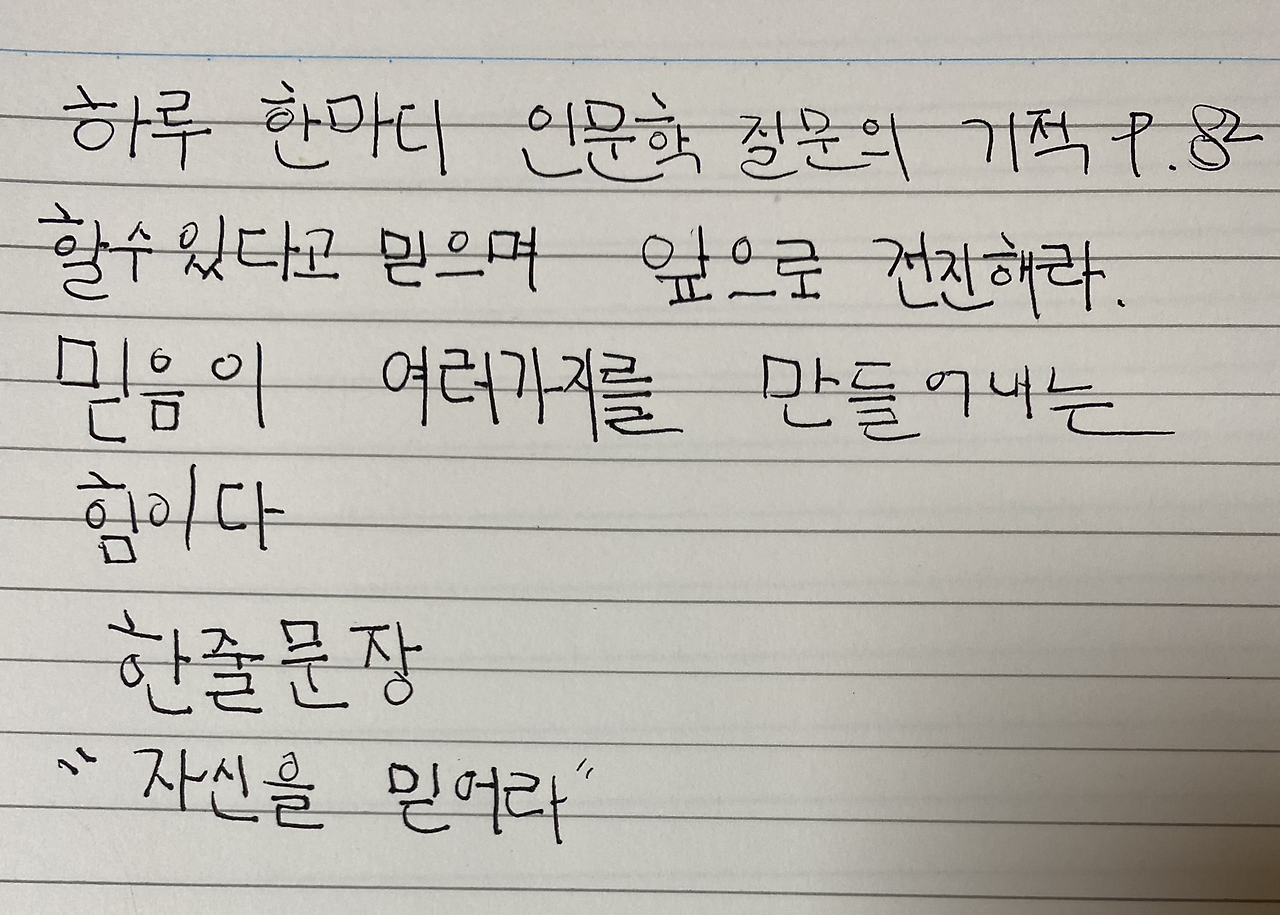 하루 한마디 인문학 질문의 기적 P.82
할수있다고 믿으며 앞으로 전진해라.
믿음이 여러가지를 만들어내는
힘이다
한줄문장
"자신을 믿어라"